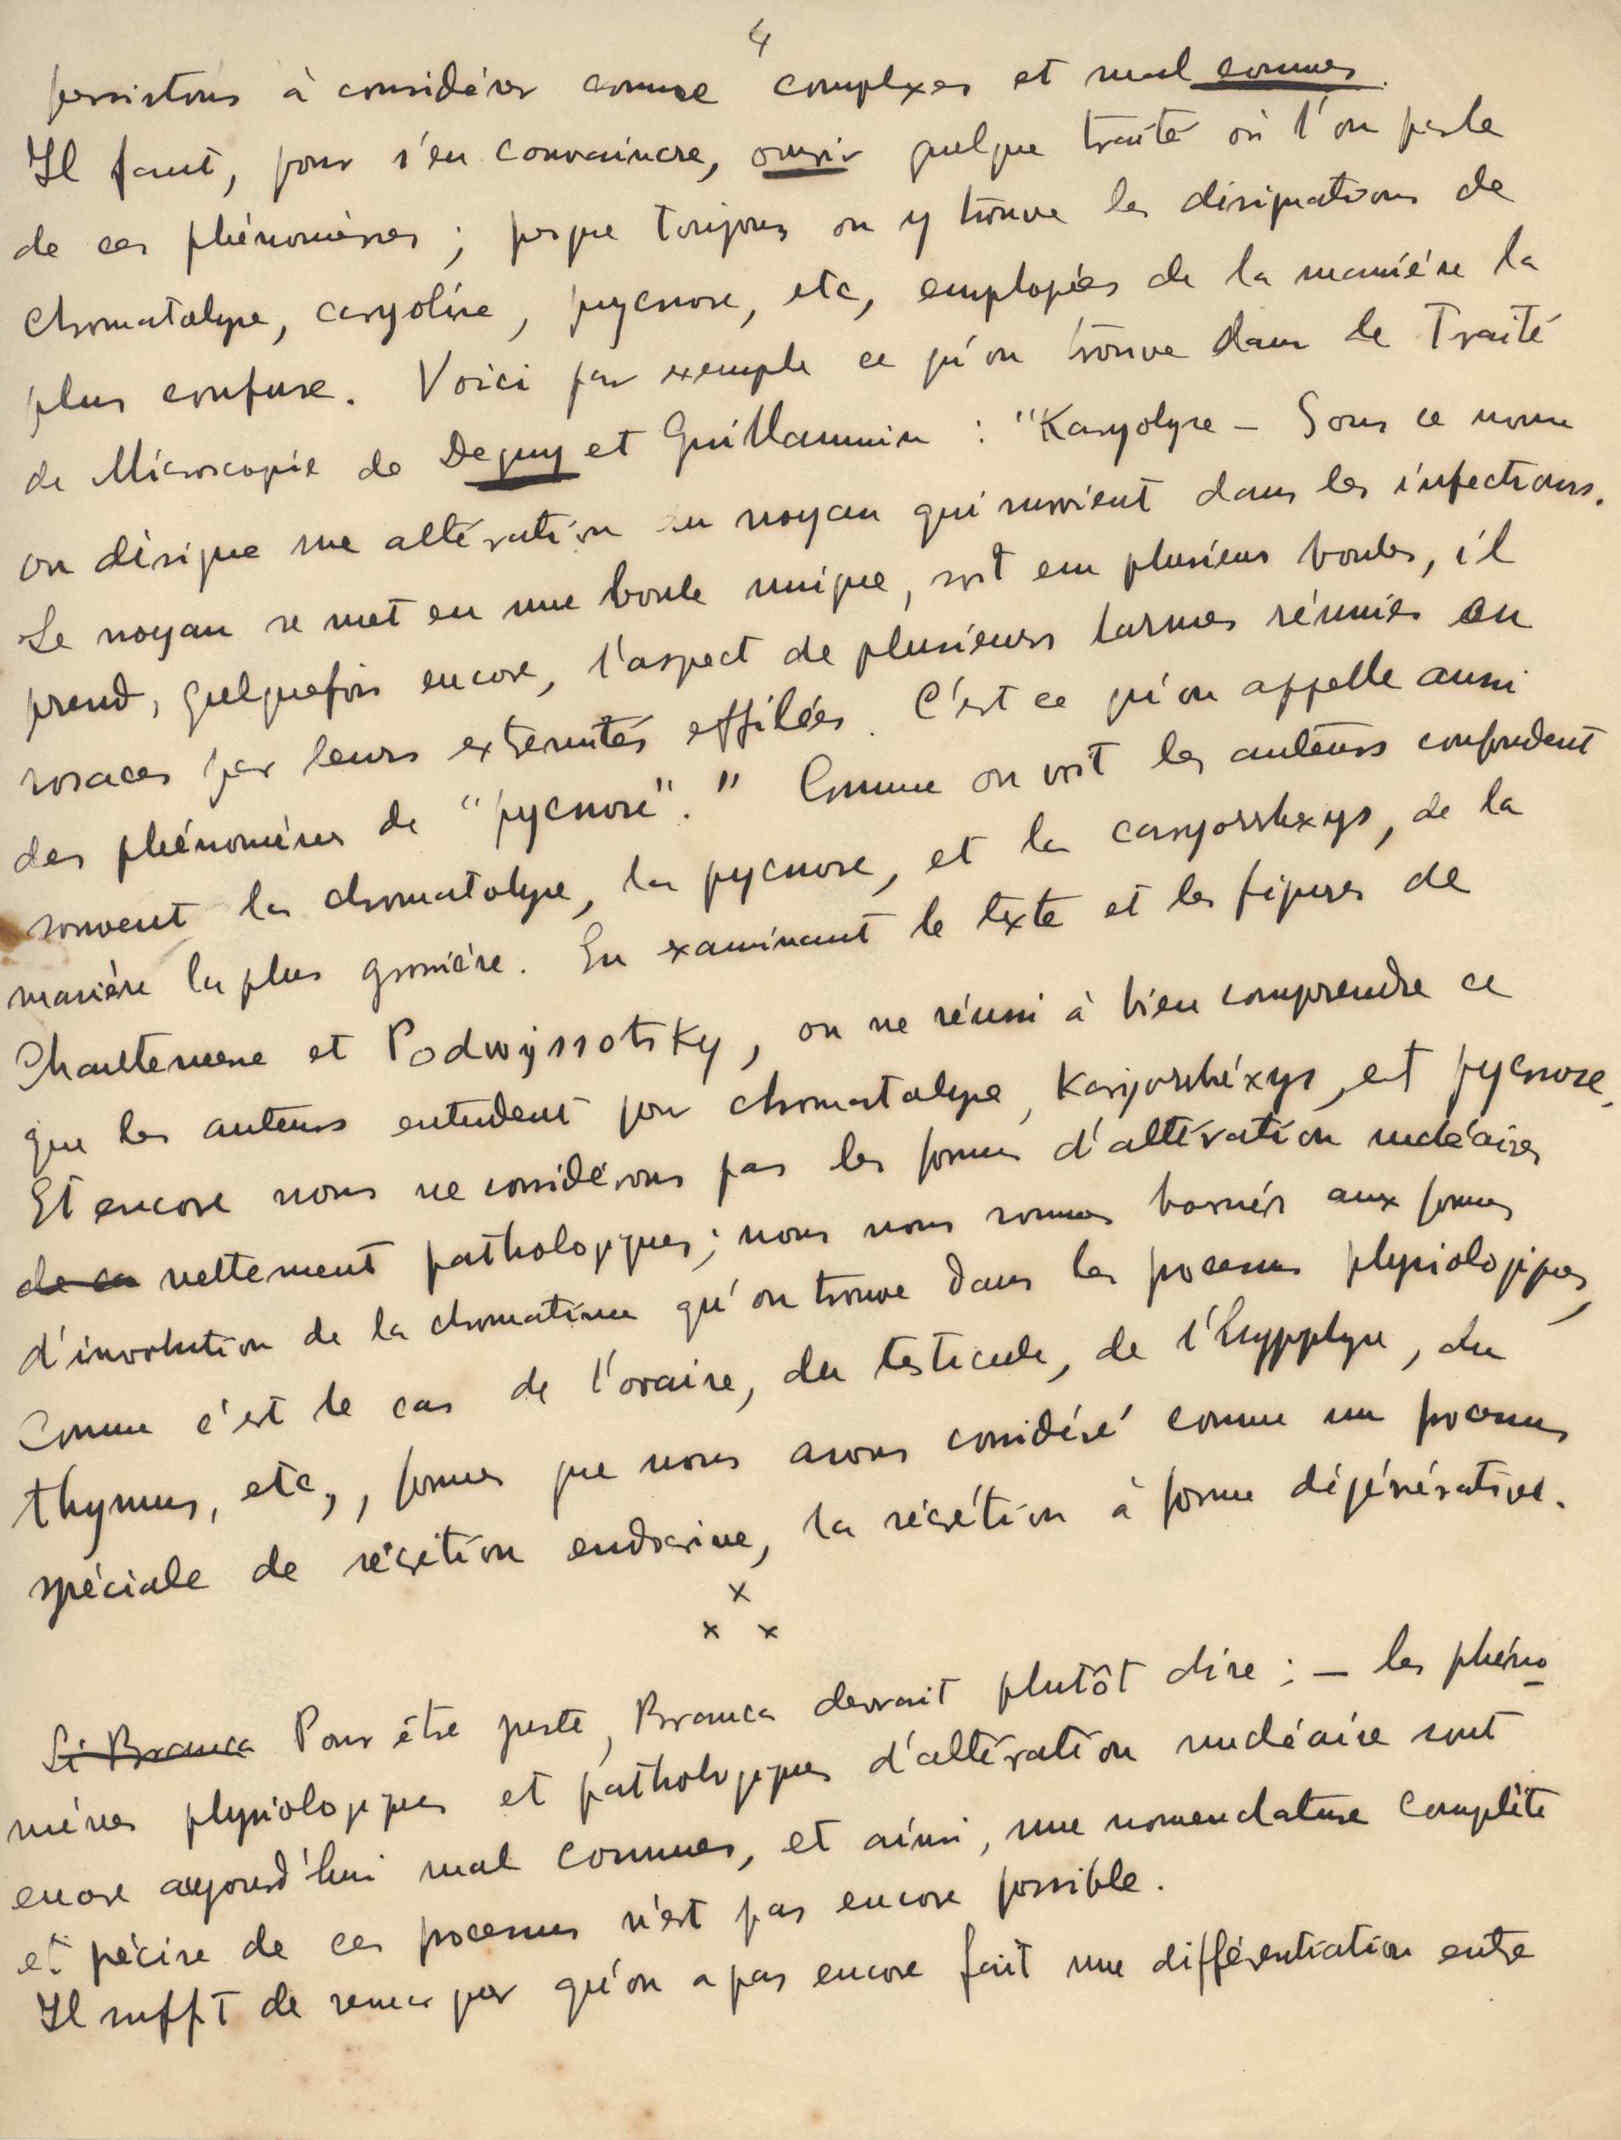 4
persistons à considérer comme complexes et mal connues.
Il faut, pour s'en convaincre, ouvrir quelque traité où l'on parle
de ces phénomènes ; presque toujours on y trouve les désignations de
chromatolyse, caryolise, pycnose, etc, employées de la manière la
plus confuse. Voici par exemple ce qu'on trouve dans le Traité
de Microscopie de Deguy et Guillaumin : "Karyolyse – Sous ce nom
on désigne une altération du noyau qui survient dans les infections.
Le noyau se met en une boule unique, soit en plusieurs boules, il
prend, quelquefois encore, l'aspect de plusieurs larmes réunies en
rosaces par leurs extremités effilées. C'est ce qu'on appelle aussi
des phénomènes de "pycnose"." Comme on voit les auteurs confondent
souvent la chromatolyse, la pycnose, et la caryorrhexys, de la
manière la plus grossière. En examinant le texte et les figures de
Chantemesse et Podwyssotsky, on ne réussi à bien comprendre ce
que les auteurs entendent par chromatolyse, Karyorrhéxys, et pycnose.
Et encore nous ne considérons pas les formes d'altération nucléaires
de ca nettement pathologiques ; nous nous sommes bornés aux formes
d'involution de la chromatine qu'on trouve dans les processus physiologiques,
comme c'est le cas de l'ovaire, du testicule, de l'hypophyse, du
thymus, etc, , formes que nous avons considéré comme un processus
spéciale de sécrétion endocrine, la sécrétion à forme dégénérative.
x
x x
Si Branca Pour être juste, Branca devrait plutôt dire : – les phéno-
mènes physiologiques et pathologiques d'altération nucléaire sont
encore aujourd'hui mal connues, et ainsi, une nomenclature complète
et précise de ces processus n'est pas encore possible.
Il suffit de remarquer qu'on a pas encore fait une différentiation entre